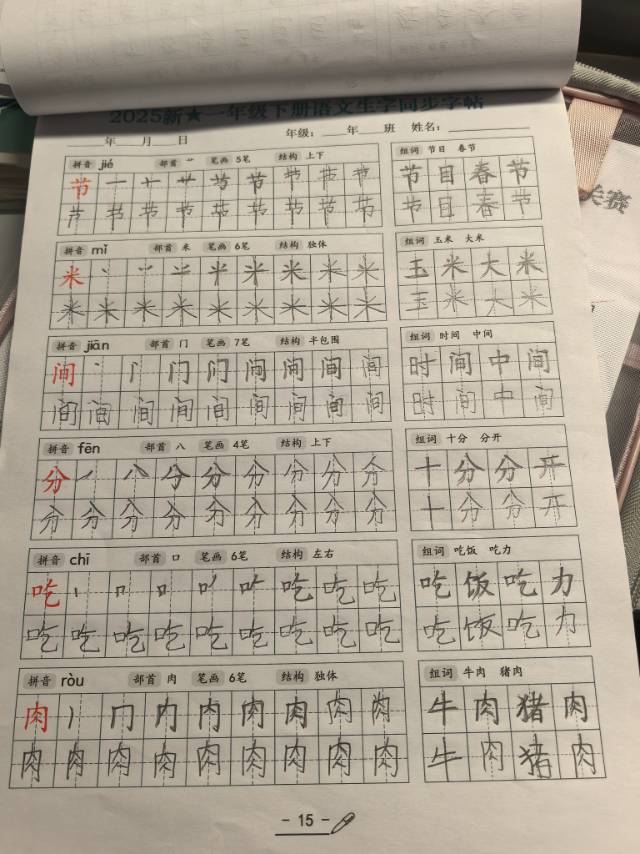 2025新★一年级下册语文生字同步字帖
年 月 日 年级: 年 班 姓名:
拼音 jié 部首 艹 笔画 5笔 结构 上下 组词 节目 春节
节 节 节 节 节 节 节 目 春 节
节 节 节 节 节 节 节 节 节 节 目 春 节
拼音 mǐ 部首 米 笔画 6笔 结构 独体 组词 玉米 大米
米 米 米 米 米 玉 米 大 米
米 米 米 米 米 米 米 米 米 玉 米 大 米
拼音 jiān 部首 门 笔画 7笔 结构 半包围 组词 时间 中间
间 门 间 间 间 间 时 间 中 间
间 间 间 间 间 间 间 间 间 时 间 中 间
拼音 fēn 部首 八 笔画 4笔 结构 上下 组词 十分 分开
分 八 分 分 分 分 分 十 分 分 开
分 分 分 分 分 分 分 分 分 十 分 分 开
拼音 chī 部首 口 笔画 6笔 结构 左右 组词 吃饭 吃力
吃 口 吃 吃 吃 吃 饭 吃 力
吃 吃 吃 吃 吃 吃 吃 吃 吃 吃 饭 吃 力
拼音 ròu 部首 肉 笔画 6笔 结构 独体 组词 牛肉 猪肉
肉 冂 内 肉 肉 肉 肉 牛 肉 猪 肉
肉 肉 肉 肉 肉 肉 肉 肉 肉 牛 肉 猪 肉
- 15 -